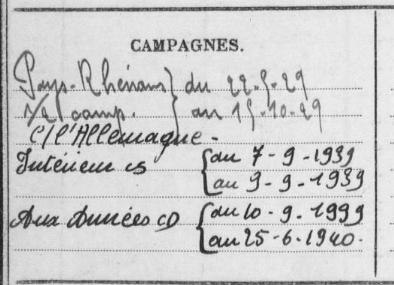 CAMPAGNES.
Pays-Rhénans } du 22.5.29
1/2 camp. } au 15.10.29
C/ l'Allemagne -
Intérieur CS { du 7-9-1939
au 9-9-1939
Aux Armées CD { du 10-9-1939
au 25-6-1940.